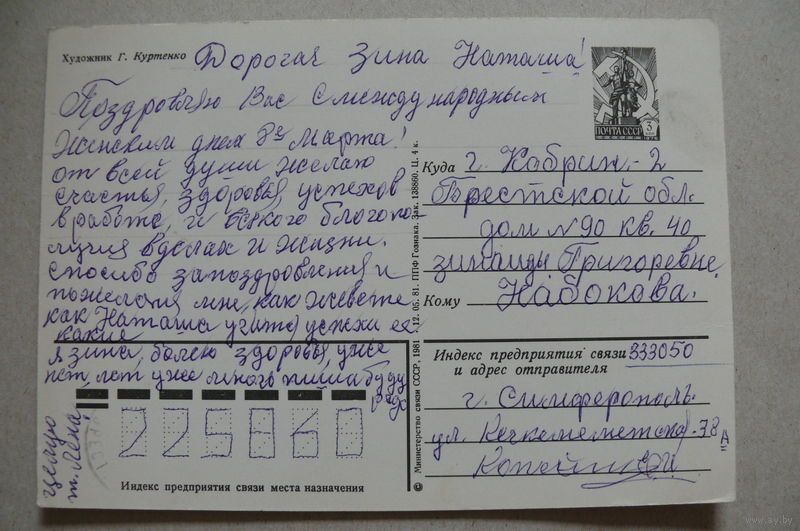 Художник Г. Куртенко
Дорогая Зина Наташа!
Поздровляю Вас Смеждународным
Женским днём 8го Марта!
от всей души желаю
счастья, здоровья, успехов
в работе, и всякого благопо-
лучия вделах и жизни.
спосибо запоздровления и
пожелания мне, как живете
как Наташа учится успехи ее
какие
я зина, болею здоровья, уже
нет, лет уже много пиши буду
рада
целую
т. Лена
ПОЧТА СССР
3
КОП
Куда г. Кабрин-2
Брестской обл.
дом N 90 кв. 40
зинаиды Григоревне
Кому Набокова.
Индекс предприятия связи 333050
и адрес отправителя
г. Симферополь
ул. Кечкеметская-78 А
225860
Индекс предприятия связи места назначения
© Министерство связи СССР, 1981 г. 12. 05. 81. ППФ Гознака. Зак. 138860. Ц. 4 к.
www.ay.by